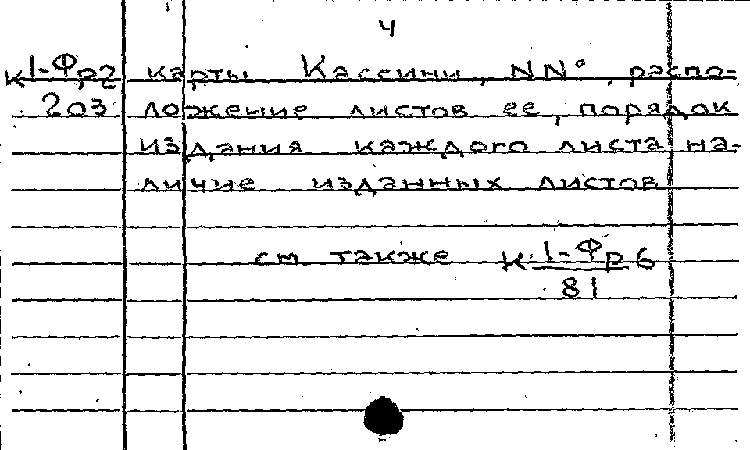 4
к 1-Фр2 карты Кассини, NN°, распо-
203 ложение листов ее, порядок
издания каждого листа на-
личие изданных листов
см также к 1-Фр 6
81